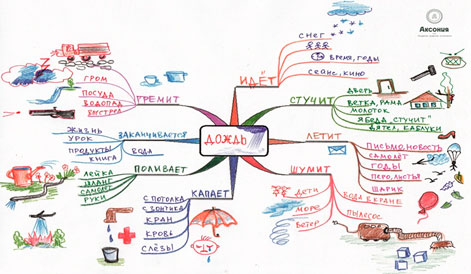 Аксония
ДОЖДЬ
ИДЁТ
СНЕГ
ВРЕМЯ, ГОДЫ
СЕАНС, КИНО
СТУЧИТ
ДВЕРЬ
ВЕТКА, РАМА
МОЛОТОК
ЯБЕДА „СТУЧИТ"
ДЯТЕЛ, КАБЛУКИ
ЛЕТИТ
ПИСЬМО, НОВОСТЬ
САМОЛЁТ
ГОДЫ
ПЕРО, ЛИСТЬЯ
ШАРИК
ШУМИТ
ДЕТИ
МОРЕ
ВЕТЕР
ВОДА В КРАНЕ
ПЫЛЕСОС
КАПАЕТ
С ПОТОЛКА
С ЗОНТИКА
КРАН
КРОВЬ
СЛЁЗЫ
ПОЛИВАЕТ
ЛЕЙКА
ШЛАНГ
САМОЛЁТ
РУКИ
ЗАКАНЧИВАЕТСЯ
ЖИЗНЬ
УРОК
ПРОДУКТЫ
КНИГА
ВОДА
ГРЕМИТ
ГРОМ
ПОСУДА
ВОДОПАД
ВЫСТРЕЛ